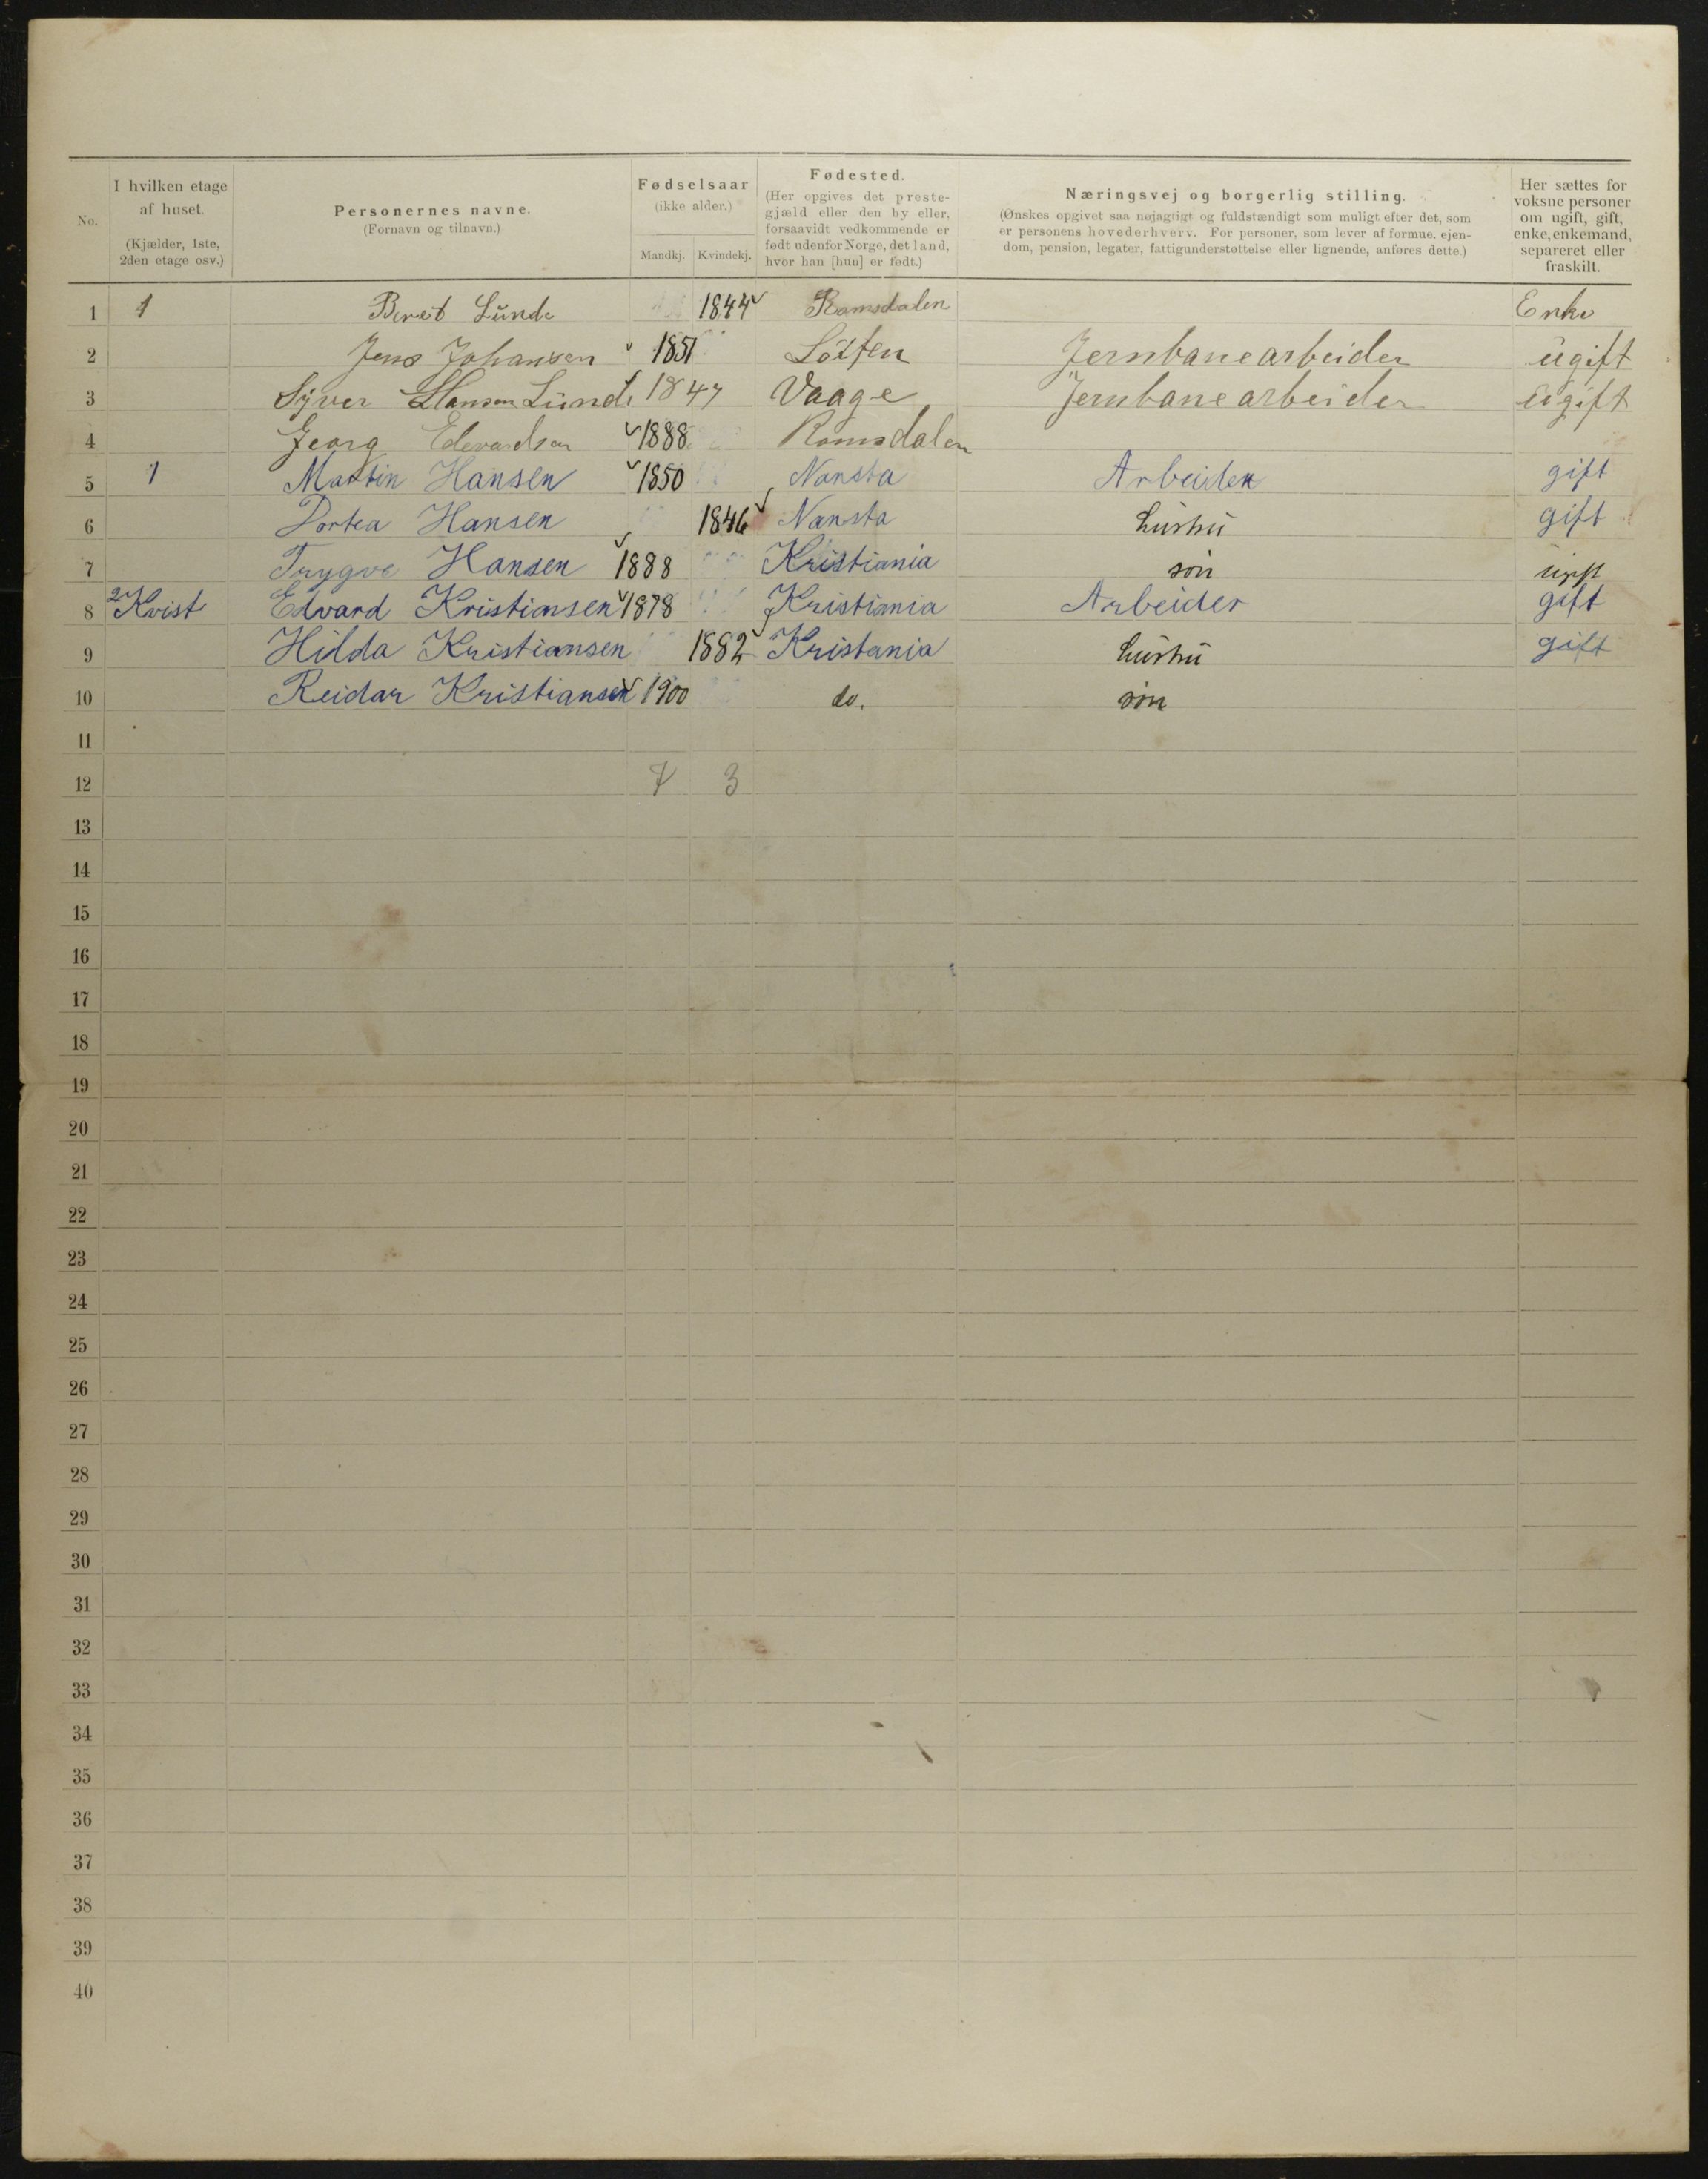 No.
I hvilken etage af huset.
(Kjælder, 1ste, 2den etage osv.)
Personernes navne.
(Fornavn og tilnavn.)
Fødselsaar
(ikke alder.)
Mandkj. Kvindekj.
Fødested.
(Her opgives det prestegjæld eller den by eller, forsaavidt vedkommende er født udenfor Norge, det land, hvor han [hun] er født.)
Næringsvej og borgerlig stilling.
(Ønskes opgivet saa nøjagtigt og fuldstændigt som muligt efter det, som er personens hovederhverv. For personer, som lever af formue, ejendom, pension, legater, fattigunderstøttelse eller lignende, anføres dette.)
Her sættes for voksne personer om ugift, gift, enke, enkemand, separeret eller fraskilt.
1 1 Berit Lunde 1844 Romsdalen Enke
2 Jens Johansen 1851 Løiten Jernbanearbeider ugift
3 Syver Hansen Lunde 1847 Vaage Jernbanearbeider ugift
4 Georg Edevardsen 1888 Romsdalen
5 1 Martin Hansen 1850 Nansta Arbeider gift
6 Dortea Hansen 1846 Nansta hustru gift
7 Trygve Hansen 1888 Kristiania søn
8 2 Kvist Edvard Kristiansen 1878 Kristiania Arbeider gift
9 Hilda Kristiansen 1882 Kristania hustru gift
10 Reidar Kristiansen 1900 do. søn
11
12 7 3
13
14
15
16
17
18
19
20
21
22
23
24
25
26
27
28
29
30
31
32
33
34
35
36
37
38
39
40